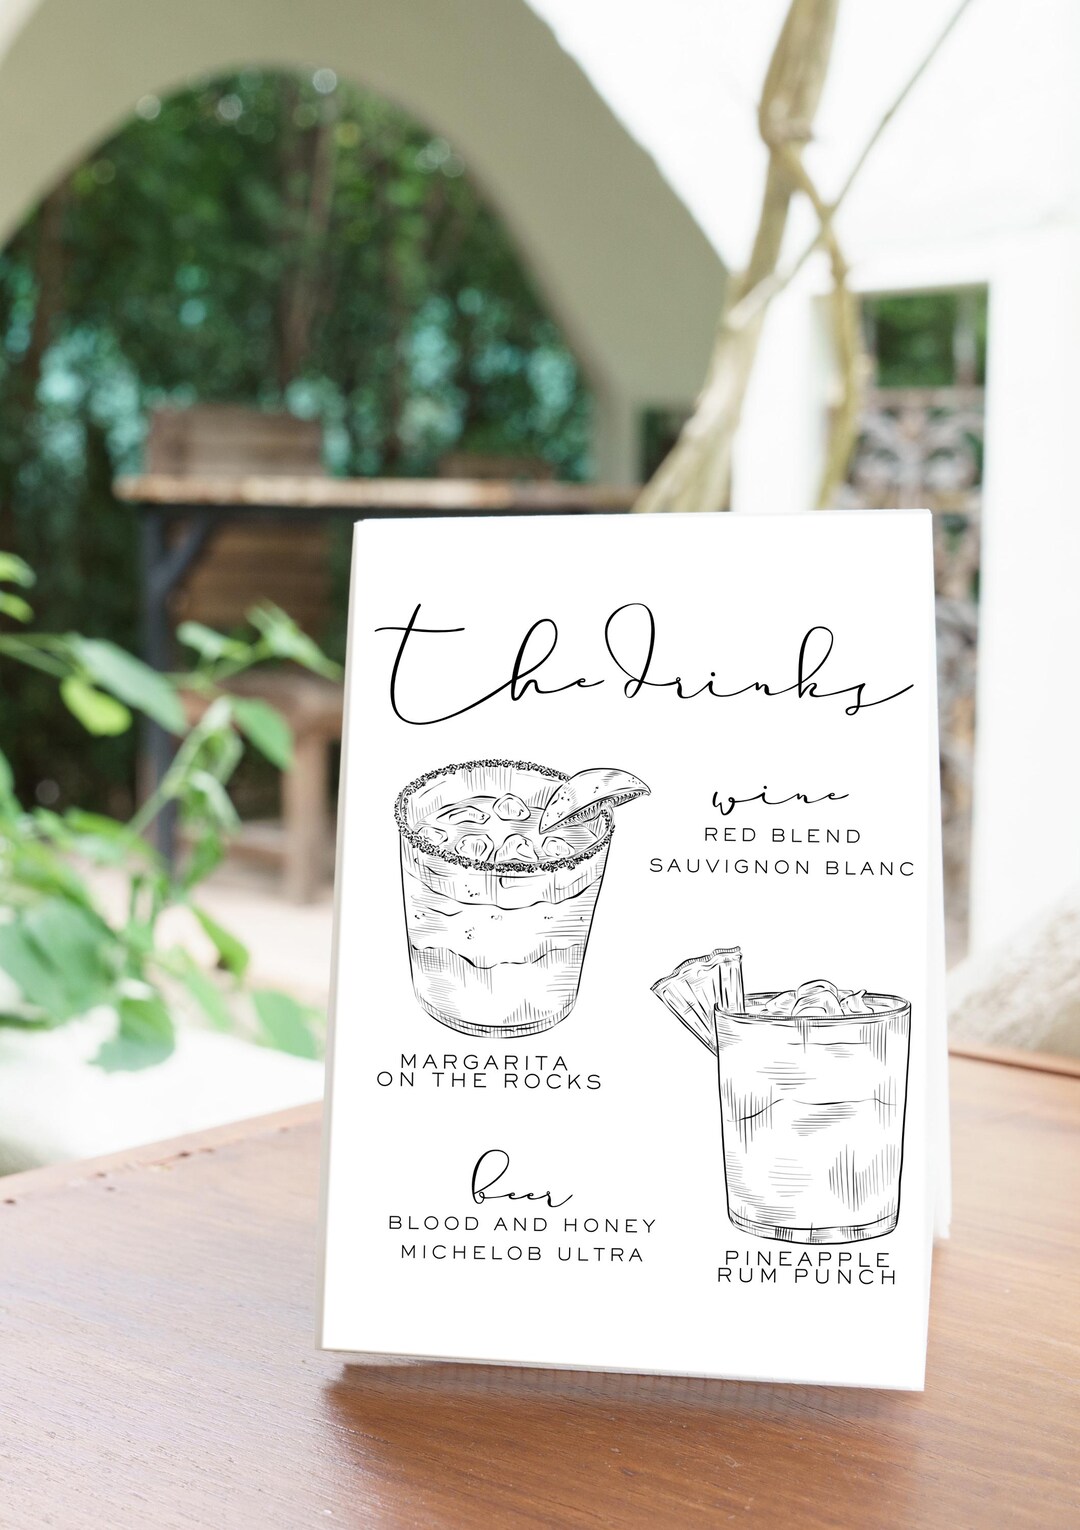 the drinks
wine
RED BLEND
SAUVIGNON BLANC
MARGARITA
ON THE ROCKS
beer
BLOOD AND HONEY
MICHELOB ULTRA
PINEAPPLE
RUM PUNCH